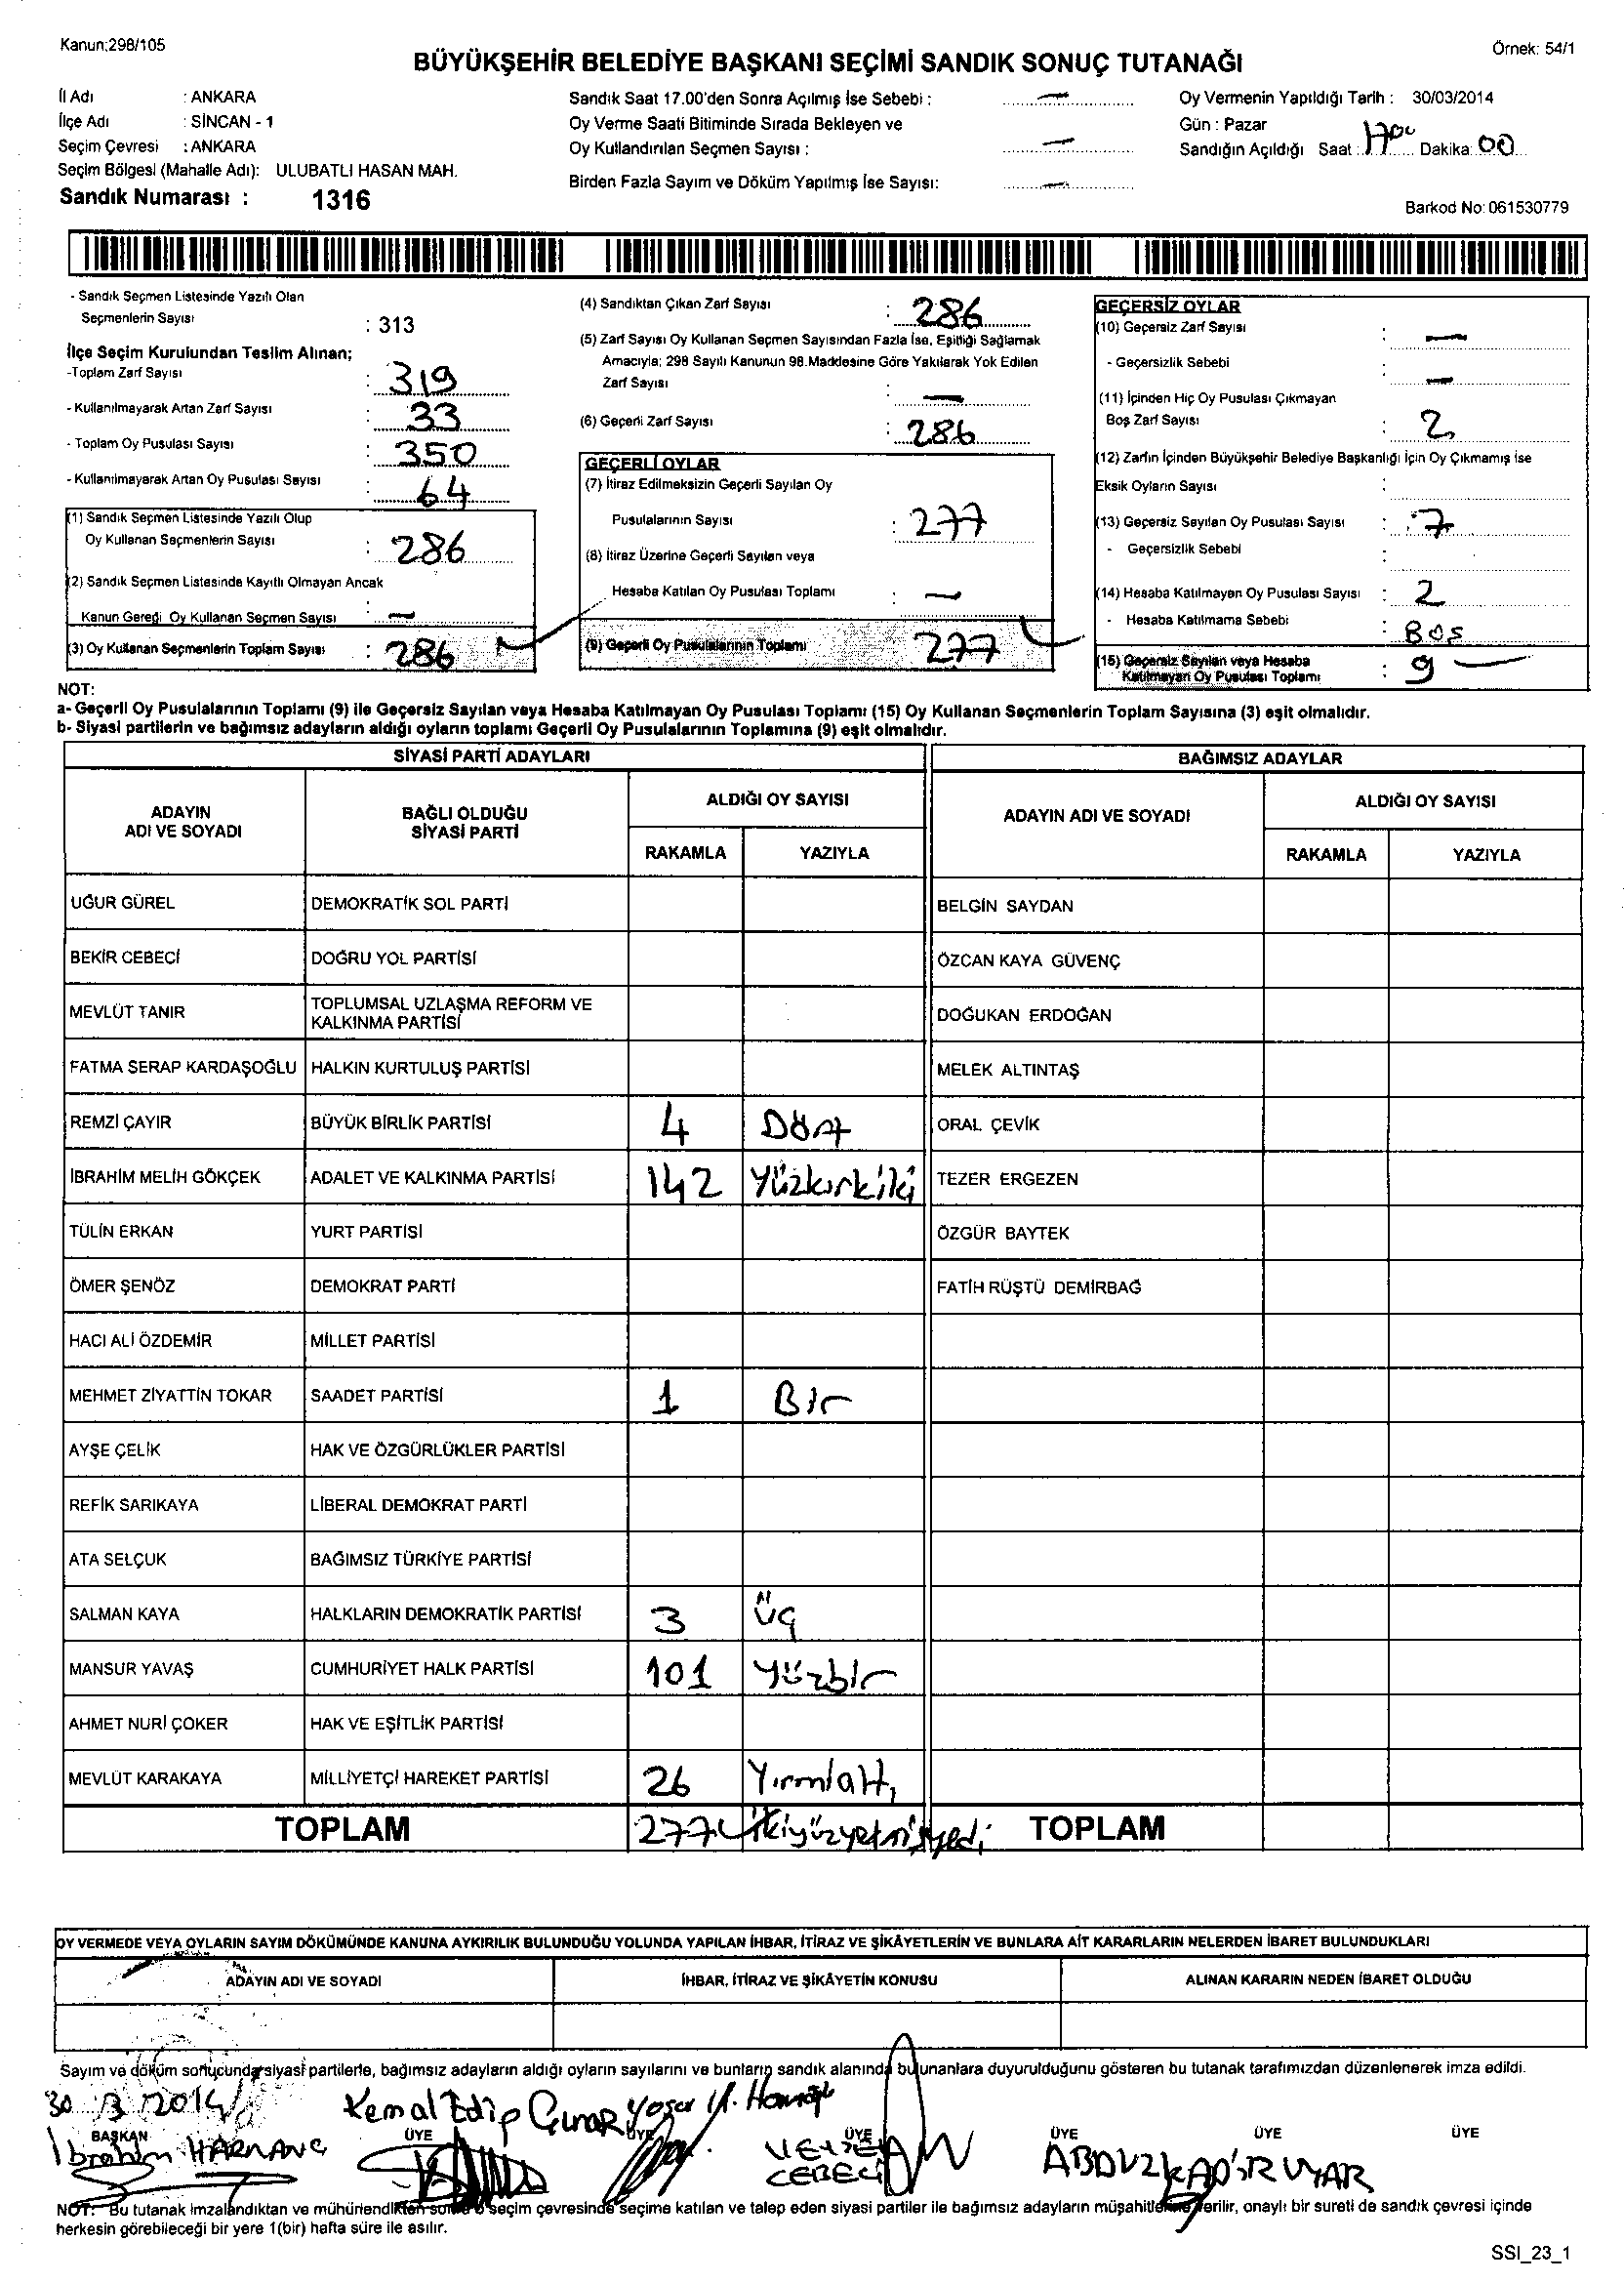 Kanun:298/105
Örnek: 54/1
BÜYÜKŞEHİR BELEDİYE BAŞKANI SEÇİMİ SANDIK SONUÇ TUTANAĞI
İl Adı : ANKARA
İlçe Adı : SİNCAN - 1
Seçim Çevresi : ANKARA
Seçim Bölgesi (Mahalle Adı): ULUBATLI HASAN MAH.
Sandık Numarası : 1316
Sandık Saat 17.00'den Sonra Açılmış İse Sebebi : —
Oy Verme Saati Bitiminde Sırada Bekleyen ve
Oy Kullandırılan Seçmen Sayısı : —
Birden Fazla Sayım ve Döküm Yapılmış İse Sayısı: —
Oy Vermenin Yapıldığı Tarih : 30/03/2014
Gün : Pazar
Sandığın Açıldığı Saat : 17 00 Dakika: 00
Barkod No: 061530779
- Sandık Seçmen Listesinde Yazılı Olan
Seçmenlerin Sayısı : 313
İlçe Seçim Kurulundan Teslim Alınan;
-Toplam Zarf Sayısı : 319
- Kullanılmayarak Artan Zarf Sayısı : 33
- Toplam Oy Pusulası Sayısı : 350
- Kullanılmayarak Artan Oy Pusulası Sayısı : 64
(1) Sandık Seçmen Listesinde Yazılı Olup
Oy Kullanan Seçmenlerin Sayısı : 286
(2) Sandık Seçmen Listesinde Kayıtlı Olmayan Ancak
Kanun Gereği Oy Kullanan Seçmen Sayısı : —
(3) Oy Kullanan Seçmenlerin Toplam Sayısı : 286
(4) Sandıktan Çıkan Zarf Sayısı : 286
(5) Zarf Sayısı Oy Kullanan Seçmen Sayısından Fazla İse, Eşitliği Sağlamak
Amacıyla; 298 Sayılı Kanunun 98.Maddesine Göre Yakılarak Yok Edilen
Zarf Sayısı : —
(6) Geçerli Zarf Sayısı : 286
GEÇERLİ OYLAR
(7) İtiraz Edilmeksizin Geçerli Sayılan Oy
Pusulalarının Sayısı : 277
(8) İtiraz Üzerine Geçerli Sayılan veya
Hesaba Katılan Oy Pusulası Toplamı : —
(9) Geçerli Oy Pusulalarının Toplamı 277
GEÇERSİZ OYLAR
(10) Geçersiz Zarf Sayısı : —
- Geçersizlik Sebebi : —
(11) İçinden Hiç Oy Pusulası Çıkmayan
Boş Zarf Sayısı : 2
(12) Zarfın İçinden Büyükşehir Belediye Başkanlığı İçin Oy Çıkmamış ise
Eksik Oyların Sayısı :
(13) Geçersiz Sayılan Oy Pusulası Sayısı : 7
- Geçersizlik Sebebi :
(14) Hesaba Katılmayan Oy Pusulası Sayısı : 2
- Hesaba Katılmama Sebebi : BOŞ
(15) Geçersiz Sayılan veya Hesaba
Katılmayan Oy Pusulası Toplamı : 9
NOT:
a- Geçerli Oy Pusulalarının Toplamı (9) ile Geçersiz Sayılan veya Hesaba Katılmayan Oy Pusulası Toplamı (15) Oy Kullanan Seçmenlerin Toplam Sayısına (3) eşit olmalıdır.
b- Siyasi partilerin ve bağımsız adayların aldığı oyların toplamı Geçerli Oy Pusulalarının Toplamına (9) eşit olmalıdır.
SİYASİ PARTİ ADAYLARI BAĞIMSIZ ADAYLAR
ADAYIN ADI VE SOYADI BAĞLI OLDUĞU SİYASİ PARTİ ALDIĞI OY SAYISI ADAYIN ADI VE SOYADI ALDIĞI OY SAYISI
RAKAMLA YAZIYLA RAKAMLA YAZIYLA
UĞUR GÜREL DEMOKRATİK SOL PARTİ BELGİN SAYDAN
BEKİR CEBECİ DOĞRU YOL PARTİSİ ÖZCAN KAYA GÜVENÇ
MEVLÜT TANIR TOPLUMSAL UZLAŞMA REFORM VE KALKINMA PARTİSİ DOĞUKAN ERDOĞAN
FATMA SERAP KARDAŞOĞLU HALKIN KURTULUŞ PARTİSİ MELEK ALTINTAŞ
REMZİ ÇAYIR BÜYÜK BİRLİK PARTİSİ 4 Dört ORAL ÇEVİK
İBRAHİM MELİH GÖKÇEK ADALET VE KALKINMA PARTİSİ 142 Yüzkırkiki TEZER ERGEZEN
TÜLİN ERKAN YURT PARTİSİ ÖZGÜR BAYTEK
ÖMER ŞENÖZ DEMOKRAT PARTİ FATİH RÜŞTÜ DEMİRBAĞ
HACI ALİ ÖZDEMİR MİLLET PARTİSİ
MEHMET ZİYATTİN TOKAR SAADET PARTİSİ 1 Bir
AYŞE ÇELİK HAK VE ÖZGÜRLÜKLER PARTİSİ
REFİK SARIKAYA LİBERAL DEMOKRAT PARTİ
ATA SELÇUK BAĞIMSIZ TÜRKİYE PARTİSİ
SALMAN KAYA HALKLARIN DEMOKRATİK PARTİSİ 3 üç
MANSUR YAVAŞ CUMHURİYET HALK PARTİSİ 101 Yüzbir
AHMET NURİ ÇOKER HAK VE EŞİTLİK PARTİSİ
MEVLÜT KARAKAYA MİLLİYETÇİ HAREKET PARTİSİ 26 Yirmialtı
TOPLAM 277 ikiyüzyetmişyedi TOPLAM
OY VERMEDE VEYA OYLARIN SAYIM DÖKÜMÜNDE KANUNA AYKIRILIK BULUNDUĞU YOLUNDA YAPILAN İHBAR, İTİRAZ VE ŞİKÂYETLERİN VE BUNLARA AİT KARARLARIN NELERDEN İBARET BULUNDUKLARI
ADAYIN ADI VE SOYADI İHBAR, İTİRAZ VE ŞİKÂYETİN KONUSU ALINAN KARARIN NEDEN İBARET OLDUĞU
Sayım ve döküm sonucunda siyasi partilerle, bağımsız adayların aldığı oyların sayılarını ve bunların sandık alanında bulunanlara duyurulduğunu gösteren bu tutanak tarafımızdan düzenlenerek imza edildi.
30 /3 /2014 Kemal Edip Çınar Yaşar
BAŞKAN ÜYE ÜYE ÜYE ÜYE ÜYE ÜYE
İbrahim CEBECİ ABDULKADİR UYAR
NOT: Bu tutanak imzalandıktan ve mühürlendikten sonra o seçim çevresinde seçime katılan ve talep eden siyasi partiler ile bağımsız adayların müşahitlerine verilir, onaylı bir sureti de sandık çevresi içinde
herkesin görebileceği bir yere 1(bir) hafta süre ile asılır.
SSI_23_1